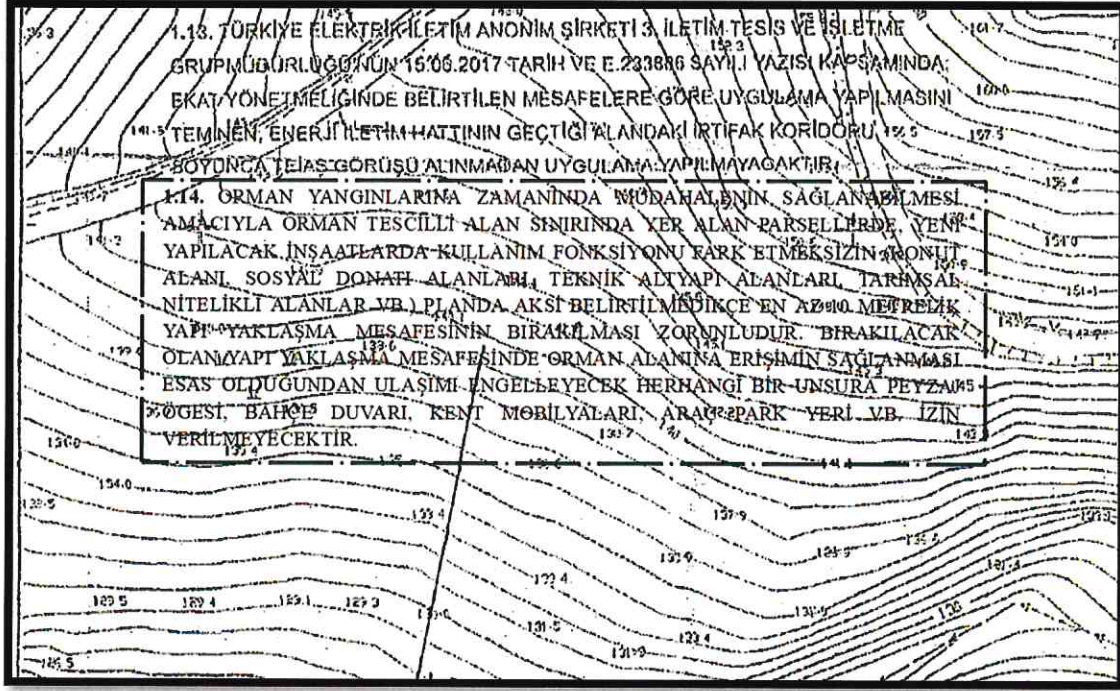 1.13. TÜRKİYE ELEKTRİK İLETİM ANONİM ŞİRKETİ 3. İLETİM TESİS VE İŞLETME
GRUP MÜDÜRLÜĞÜ'NÜN 15.06.2017 TARİH VE E.233886 SAYILI YAZISI KAPSAMINDA;
EKAT YÖNETMELİĞİNDE BELİRTİLEN MESAFELERE GÖRE UYGULAMA YAPILMASINI
TEMİNEN, ENERJİ İLETİM HATTININ GEÇTİĞİ ALANDAKİ İRTİFAK KORİDORU
BOYUNCA TEİAŞ GÖRÜŞÜ ALINMADAN UYGULAMA YAPILMAYACAKTIR.
1.14. ORMAN YANGINLARINA ZAMANINDA MÜDAHALENİN SAĞLANABİLMESİ
AMACIYLA ORMAN TESCİLLİ ALAN SINIRINDA YER ALAN PARSELLERDE, YENİ
YAPILACAK İNŞAATLARDA KULLANIM FONKSİYONU FARK ETMEKSİZİN (KONUT
ALANI, SOSYAL DONATI ALANLARI, TEKNİK ALTYAPI ALANLARI, TARIMSAL
NİTELİKLİ ALANLAR VB.) PLANDA AKSİ BELİRTİLMEDİKÇE EN AZ 10 METRELİK
YAPI YAKLAŞMA MESAFESİNİN BIRAKILMASI ZORUNLUDUR. BIRAKILACAK
OLAN YAPI YAKLAŞMA MESAFESİNDE ORMAN ALANINA ERİŞİMİN SAĞLANMASI
ESAS OLDUĞUNDAN ULAŞIMI ENGELLEYECEK HERHANGİ BİR UNSURA PEYZAJ
ÖGESİ, BAHÇE DUVARI, KENT MOBİLYALARI, ARAÇ PARK YERİ VB. İZİN
VERİLMEYECEKTİR.
134.0
133.4
137.9
130.7
133.4
129.5 129.4 129.1 129.3
131.5
133.4